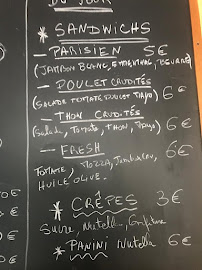 DU JOUR
* SANDWICHS
— PARISIEN 5€
(JAMBON BLANC, EMMENTAL, BEURRE)
— POULET CRUDITÉS
(SALADE TOMATE POULET MAYO) 6€
— THON CRUDITÉS
(Salade, Tomate, THON, Mayo) 6€
— FRESH 6€
TOMATE, MOZZA,
HUILE OLIVE.
* CRÊPES 3€
Sucre, Nutella, Confiture
* PANINI Nutella 6€